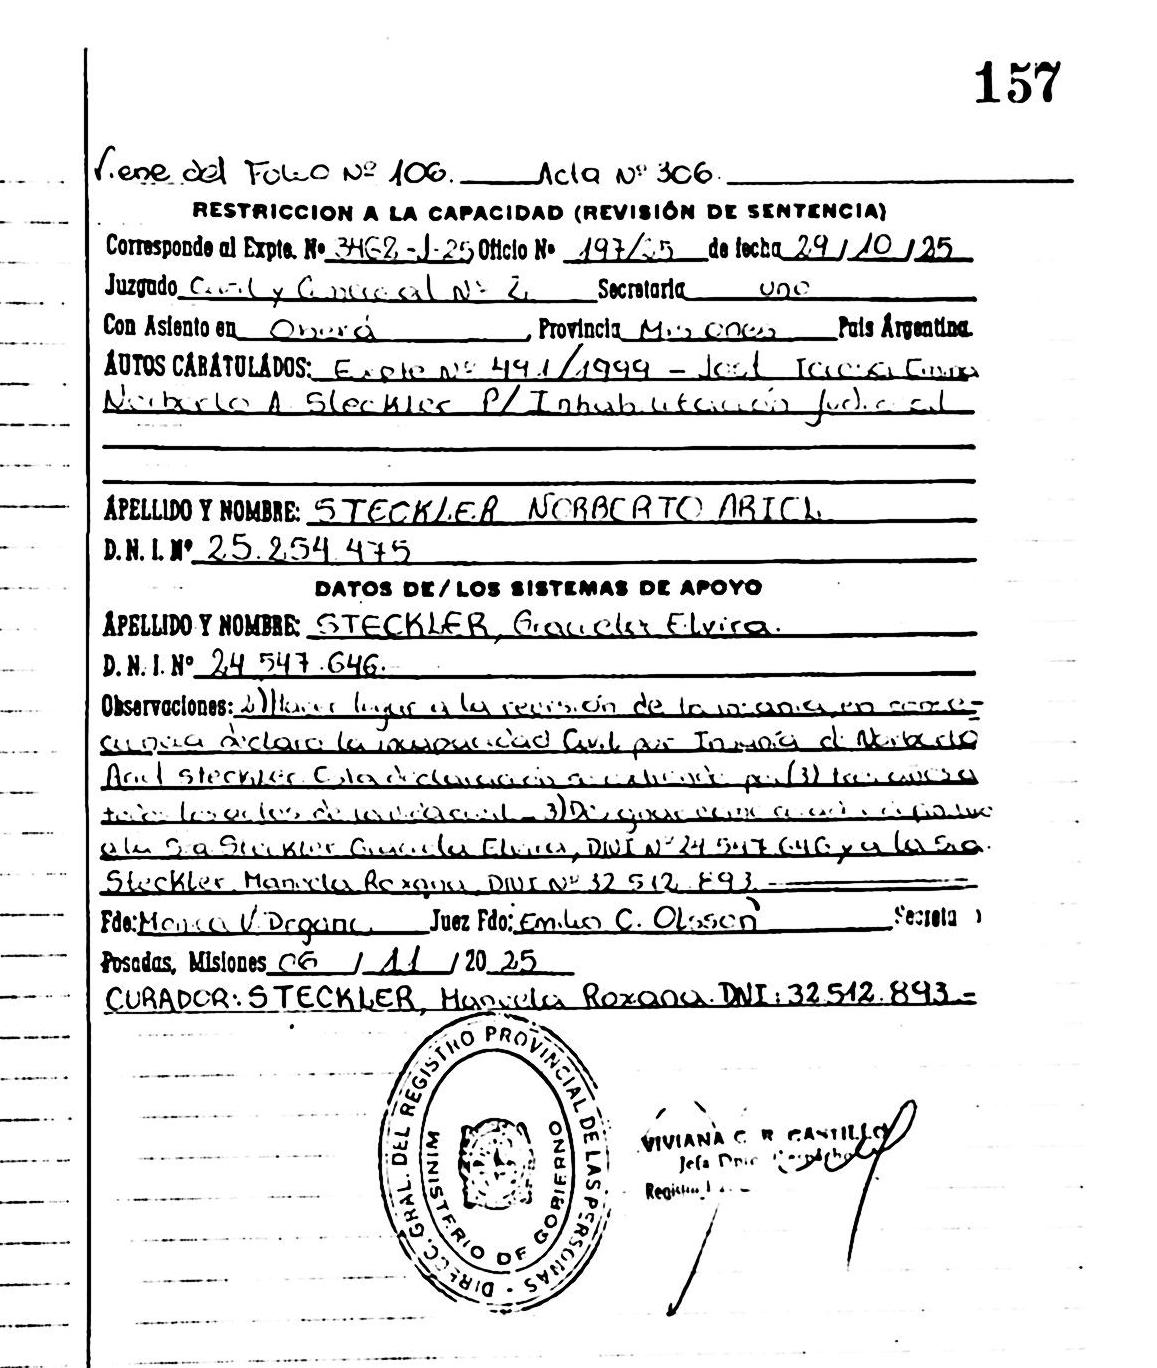 157
Viene del Folio Nº 106. Acta Nº 306.
RESTRICCION A LA CAPACIDAD (REVISIÓN DE SENTENCIA)
Corresponde al Expte. Nº 3462-J-25 Oficio Nº 197/25 de fecha 29/10/25
Juzgado Civil y Comercial Nº 2 Secretaria uno
Con Asiento en Oberá, Provincia Misiones Pais Argentina.
AUTOS CARATULADOS: Expte Nº 441/1999 - José
Norberto A Steckler P/ Inhabilitación Judicial
APELLIDO Y NOMBRE: STECKLER NORBERTO ARIEL
D. N. I. Nº 25.254.475
DATOS DE/LOS SISTEMAS DE APOYO
APELLIDO Y NOMBRE: STECKLER, Graciela Elvira.
D. N. I. Nº 24 547.646.
Observaciones: 2) Hacer lugar a la revisión de la en conse-
cuencia declara la incapacidad Civil por Insania de Norberto
Ariel Steckler. Esta declaración se extiende por (3) tres
todos los actos de la vida civil - 3) Designar como
a la Sra Steckler Graciela Elvira, DNI Nº 24 547 646 y a la Sra.
Steckler Marcela Roxana DNI Nº 32 512 893
Fdo: Monica V. Juez Fdo: Emilio C. Olsson Secreta
Posadas, Misiones 06 / 11 / 20 25
CURADOR: STECKLER, Marcela Roxana. DNI: 32.512.893.-
DIRECC. GRAL. DEL REGISTRO PROVINCIAL DE LAS PERSONAS
MINISTERIO DE GOBIERNO
VIVIANA C. R. CASTILLO
Jefa Dpto. Despacho